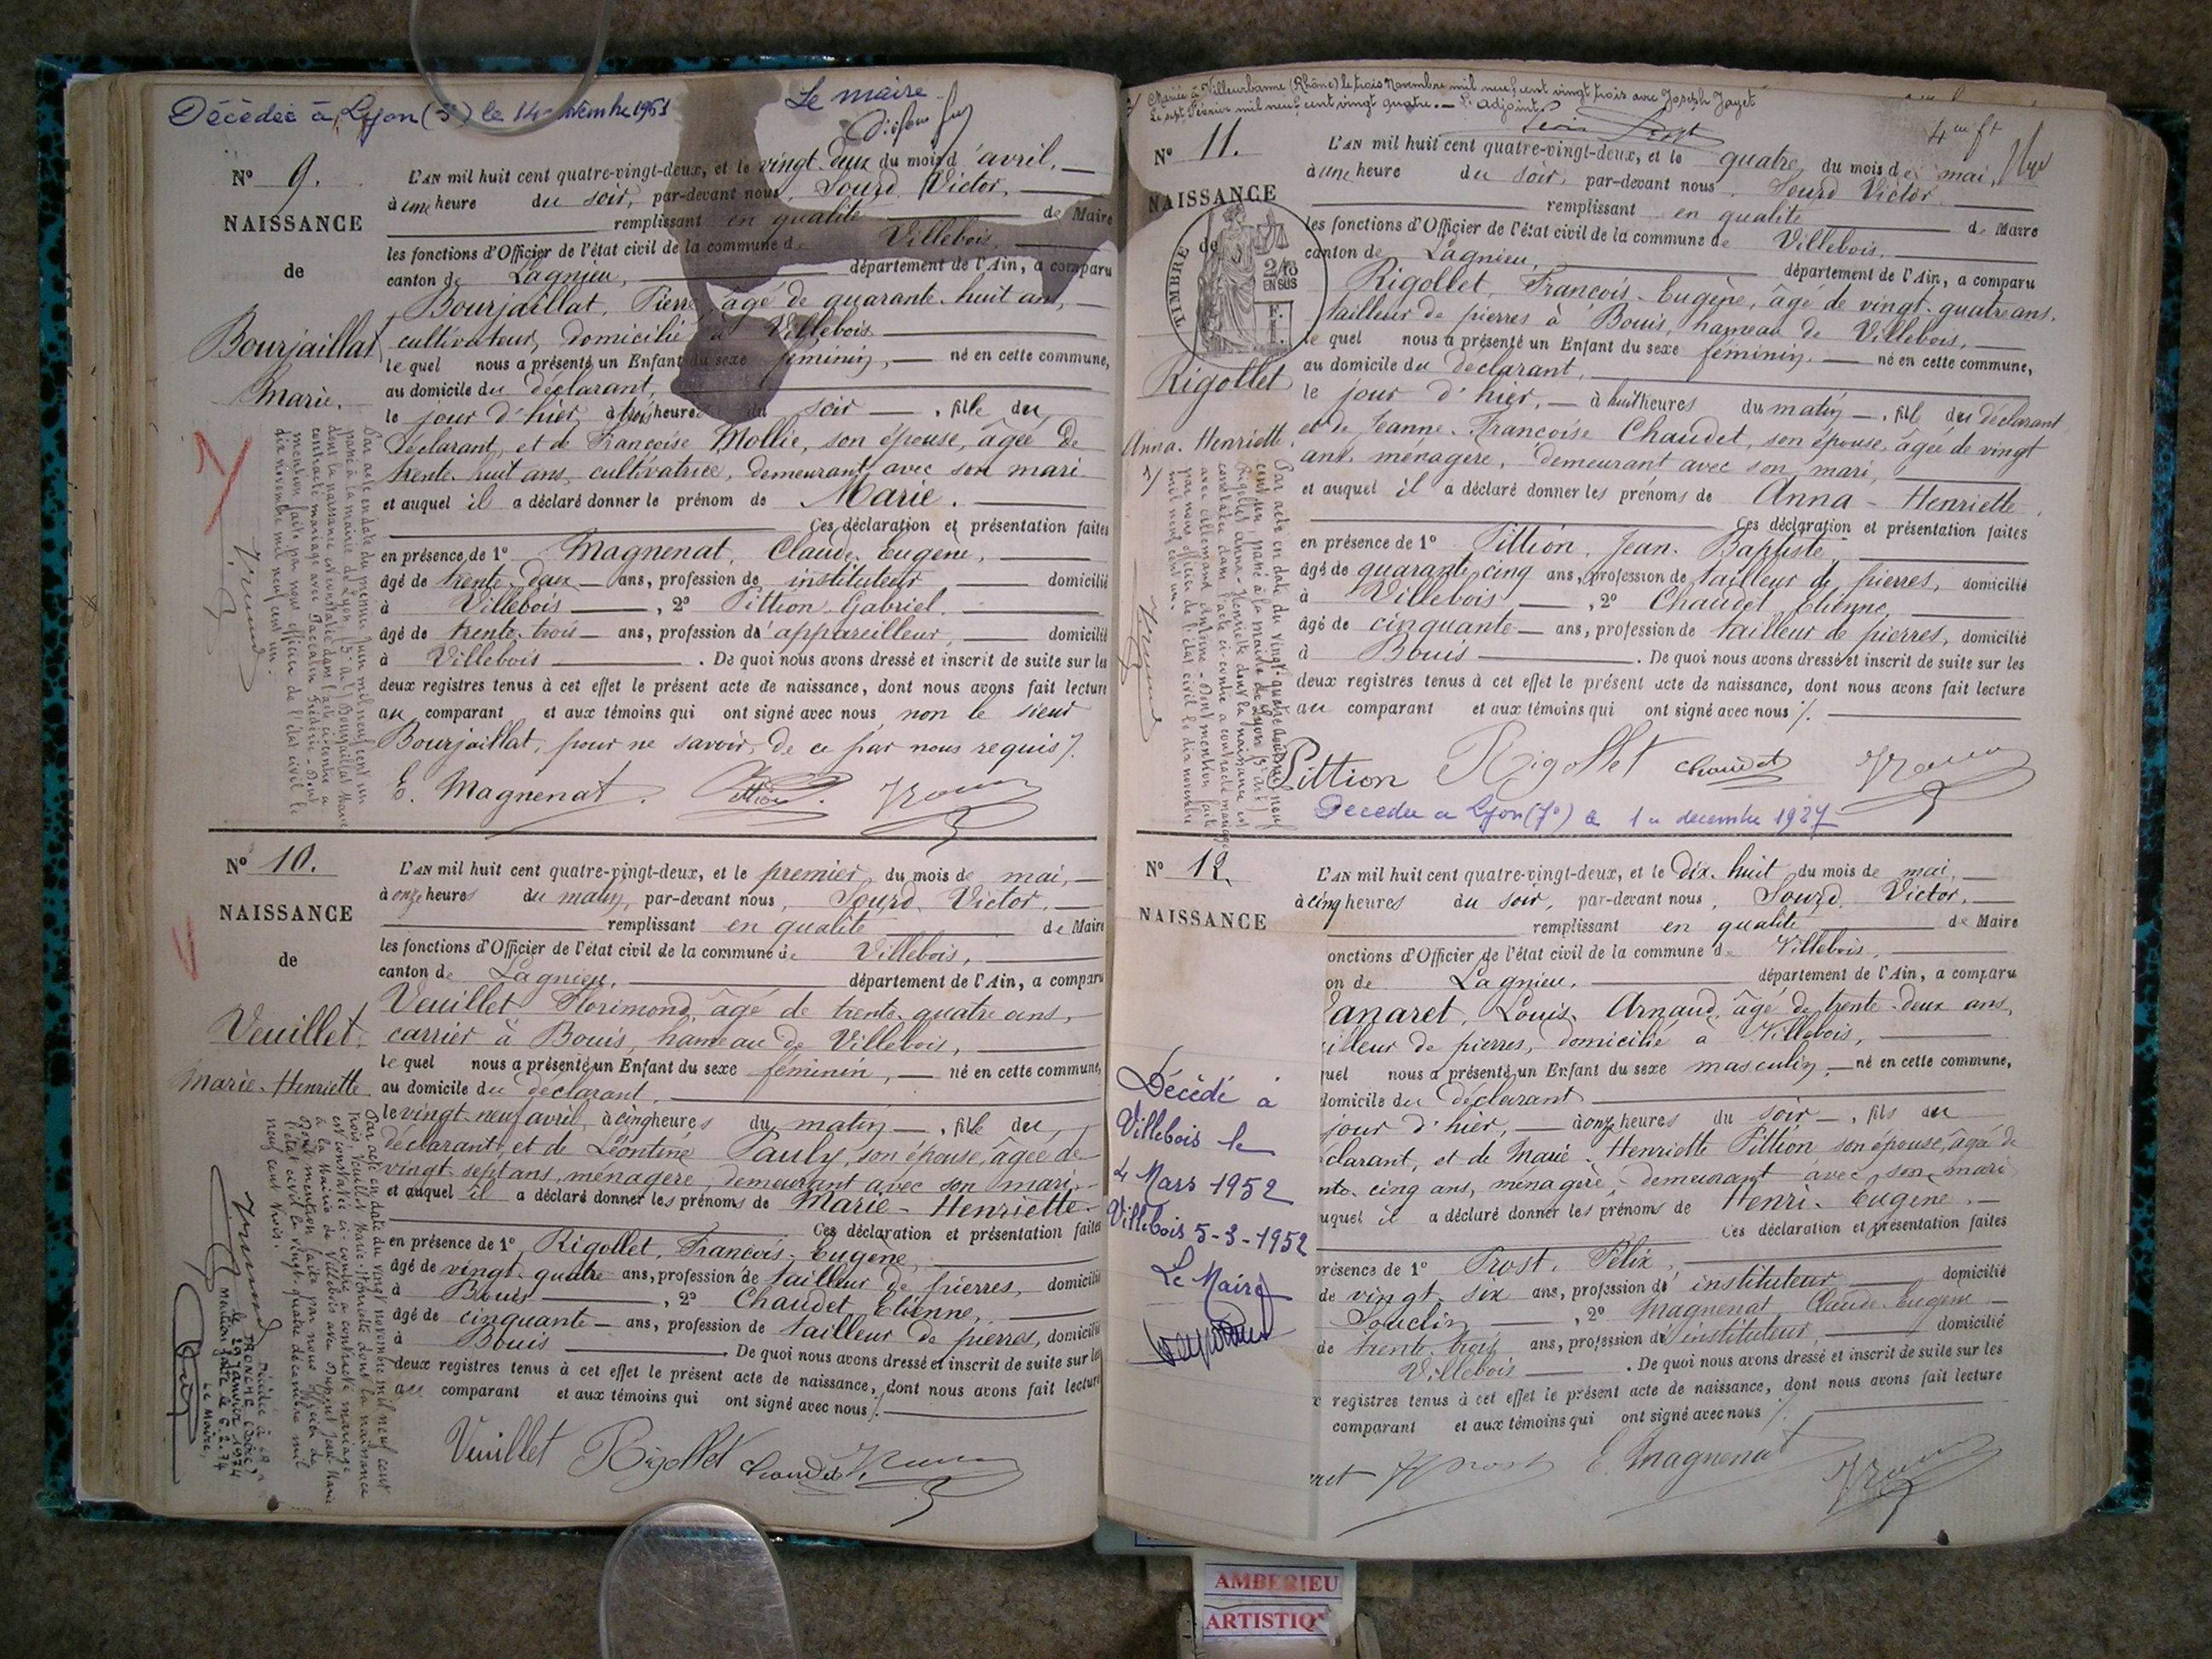 Décédée à Lyon (5e) le 14 1951
Le maire
No 9.
NAISSANCE
de
Bourjaillat
Marie.
L'AN mil huit cent quatre-vingt-deux, et le vingt-deux du mois d'avril,
à une heure du soir, par-devant nous, Sourd Victor,
remplissant en qualité de Maire
les fonctions d'Officier de l'état civil de la commune de Villebois,
canton de Lagnieu, département de l'Ain, a comparu
Bourjaillat, Pierre, âgé de quarante-huit ans,
cultivateur, domicilié à Villebois
lequel nous a présenté un Enfant du sexe féminin, né en cette commune,
au domicile du déclarant,
le jour d'hier, à trois heures du soir, fille du
déclarant, et de Françoise Mollie, son épouse, âgée de
trente-huit ans, cultivatrice, demeurant avec son mari
et auquel il a déclaré donner le prénom de Marie.
Ces déclaration et présentation faites
en présence de 1o Magnenat, Claude-Eugène,
âgé de trente-deux ans, profession de instituteur domicilié
à Villebois, 2o Pittion Gabriel.
âgé de trente-trois ans, profession d'appareilleur, domicilié
à Villebois. De quoi nous avons dressé et inscrit de suite sur les
deux registres tenus à cet effet le présent acte de naissance, dont nous avons fait lecture
au comparant et aux témoins qui ont signé avec nous, non le sieur
Bourjaillat, pour ne savoir, de ce par nous requis /.
E. Magnenat. Pittion.
Par acte en date du premier Juin mil neuf cent un
passé à la mairie de Lyon (3e art) Bourjaillat Marie
dont la naissance est constatée dans l'acte ci-contre a
contracté mariage avec Jaccalin Frédéric - Dont
mention faite par nous officier de l'état civil le
dix novembre mil neuf cent un.
No 10.
NAISSANCE
de
Veuillet
Marie-Henriette
L'AN mil huit cent quatre-vingt-deux, et le premier du mois de mai,
à onze heures du matin, par-devant nous, Sourd Victor,
remplissant en qualité de Maire
les fonctions d'Officier de l'état civil de la commune de Villebois,
canton de Lagnieu, département de l'Ain, a comparu
Veuillet Florimond, âgé de trente-quatre ans,
carrier à Bouis, hameau de Villebois,
lequel nous a présenté un Enfant du sexe féminin, né en cette commune,
au domicile du déclarant,
le vingt-neuf avril, à cinq heures du matin, fille du
déclarant, et de Léontine Pauly, son épouse, âgée de
vingt-sept ans, ménagère, demeurant avec son mari,
et auquel il a déclaré donner les prénoms de Marie-Henriette.
Ces déclaration et présentation faites
en présence de 1o Rigollet, François-Eugène,
âgé de vingt-quatre ans, profession de tailleur de pierres, domicilié
à Bouis, 2o Chaudet Etienne,
âgé de cinquante ans, profession de tailleur de pierres, domicilié
à Bouis. De quoi nous avons dressé et inscrit de suite sur les
deux registres tenus à cet effet le présent acte de naissance, dont nous avons fait lecture
au comparant et aux témoins qui ont signé avec nous /.
Veuillet Rigollet Chaudet
Par acte en date du vingt novembre mil neuf cent
trois, Veuillet Marie-Henriette dont la naissance
est constatée ci-contre a contracté mariage
à la Mairie de Villebois avec Dupont Jean Marie
Dont mention faite par nous officier de
l'état civil le vingt-quatre décembre mil
neuf cent trois.
Décédée à
le 29 Janvier 1974
Mention faite le 6.2.74
Le Maire,
Mariée à Villeurbanne (Rhône) le trois Novembre mil neuf cent vingt trois avec Joseph Jayet
Le sept Février mil neuf cent vingt quatre. - L'adjoint
No 11.
NAISSANCE
de
TIMBRE
2/10
EN SUS
Rigollet
Anna-Henriette.
L'AN mil huit cent quatre-vingt-deux, et le quatre du mois de mai,
à une heure du soir, par-devant nous, Sourd Victor
remplissant en qualité de Maire
les fonctions d'Officier de l'état civil de la commune de Villebois,
canton de Lagnieu, département de l'Ain, a comparu
Rigollet, François-Eugène, âgé de vingt-quatre ans,
tailleur de pierres à Bouis, hameau de Villebois,
lequel nous a présenté un Enfant du sexe féminin, né en cette commune,
au domicile du déclarant,
le jour d'hier, à huit heures du matin, fille du déclarant
et de Jeanne-Françoise Chaudet, son épouse, âgée de vingt
ans, ménagère, demeurant avec son mari,
et auquel il a déclaré donner les prénoms de Anna-Henriette.
Ces déclaration et présentation faites
en présence de 1o Pittion, Jean-Baptiste,
âgé de quarante-cinq ans, profession de tailleur de pierres, domicilié
à Villebois, 2o Chaudet Etienne,
âgé de cinquante ans, profession de tailleur de pierres, domicilié
à Bouis. De quoi nous avons dressé et inscrit de suite sur les
deux registres tenus à cet effet le présent acte de naissance, dont nous avons fait lecture
au comparant et aux témoins qui ont signé avec nous /.
Pittion Rigollet Chaudet
Décédée à Lyon (7e) le 1er décembre 1927
No 12.
NAISSANCE
L'AN mil huit cent quatre-vingt-deux, et le dix-huit du mois de mai,
à cinq heures du soir, par-devant nous, Sourd Victor,
remplissant en qualité de Maire
onctions d'Officier de l'état civil de la commune de Villebois,
on de Lagnieu, département de l'Ain, a comparu
anaret, Louis-Arnaud, âgé de trente-deux ans,
illeur de pierres, domicilié à Villebois,
quel nous a présenté un Enfant du sexe masculin, né en cette commune,
domicile du déclarant
jour d'hier, à onze heures du soir, fils du
clarant, et de Marie-Henriette Pittion son épouse, âgée de
nte-cinq ans, ménagère demeurant avec son mari
uquel il a déclaré donner les prénoms de Henri-Eugène.
Ces déclaration et présentation faites
présence de 1o Prost, Félix,
de vingt-six ans, profession d'instituteur domicilié
Souclin, 2o Magnenat, Claude-Eugène
de trente-trois ans, profession d'instituteur, domicilié
Villebois. De quoi nous avons dressé et inscrit de suite sur les
x registres tenus à cet effet le présent acte de naissance, dont nous avons fait lecture
comparant et aux témoins qui ont signé avec nous /.
ret Prost E. Magnenat
Décédé à
Villebois le
4 Mars 1952
Villebois 5-3-1952
Le Maire
AMBERIEU
ARTISTIQ